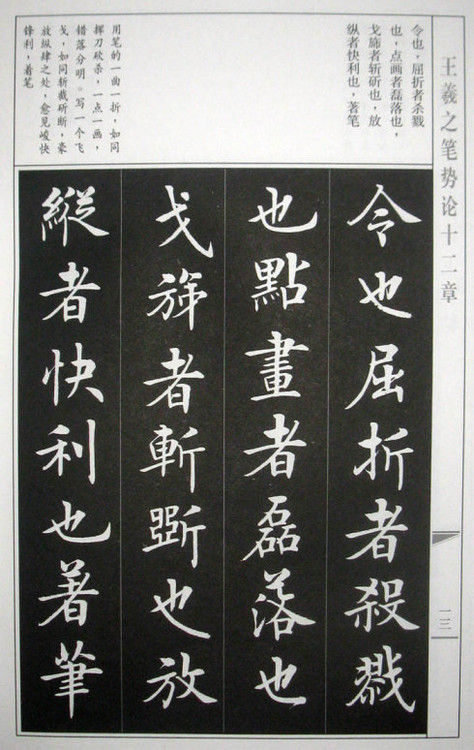 王羲之笔势论十二章
令也，屈折者杀戮
也，点画者磊落也，
戈旆者斩斫也，放
纵者快利也，著笔
用笔的一曲一折，如同
挥刀砍杀，一点一画，
错落分明。写一个飞
戈，如同斩截斫断，豪
放纵肆之处，愈见峻快
锋利，着笔
令也屈折者殺戮
也點畫者磊落也
戈旆者斬斲也放
縱者快利也著筆